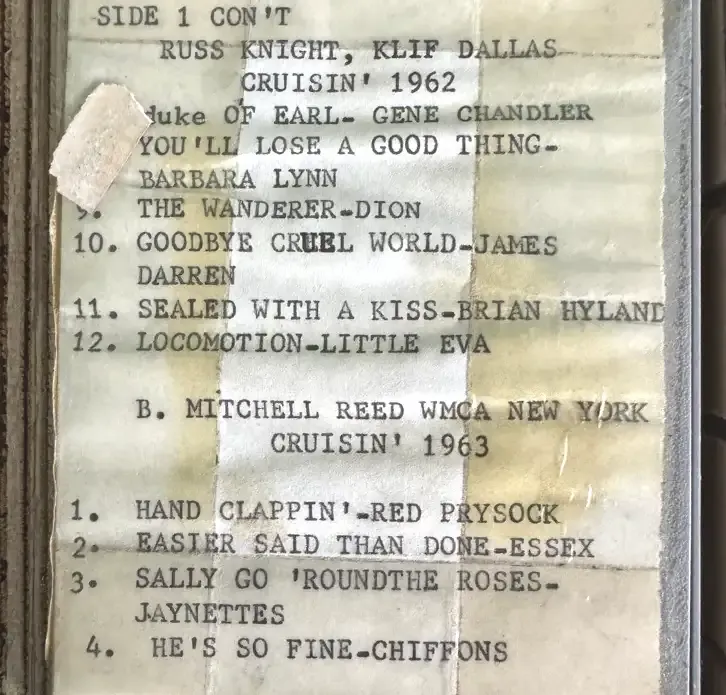 SIDE 1 CON'T
RUSS KNIGHT, KLIF DALLAS
CRUISIN' 1962
duke OF EARL- GENE CHANDLER
YOU'LL LOSE A GOOD THING-
BARBARA LYNN
9. THE WANDERER-DION
10. GOODBYE CRUEL WORLD-JAMES
DARREN
11. SEALED WITH A KISS-BRIAN HYLAND
12. LOCOMOTION-LITTLE EVA
B. MITCHELL REED WMCA NEW YORK
CRUISIN' 1963
1. HAND CLAPPIN'-RED PRYSOCK
2. EASIER SAID THAN DONE-ESSEX
3. SALLY GO 'ROUNDTHE ROSES-
JAYNETTES
4. HE'S SO FINE-CHIFFONS